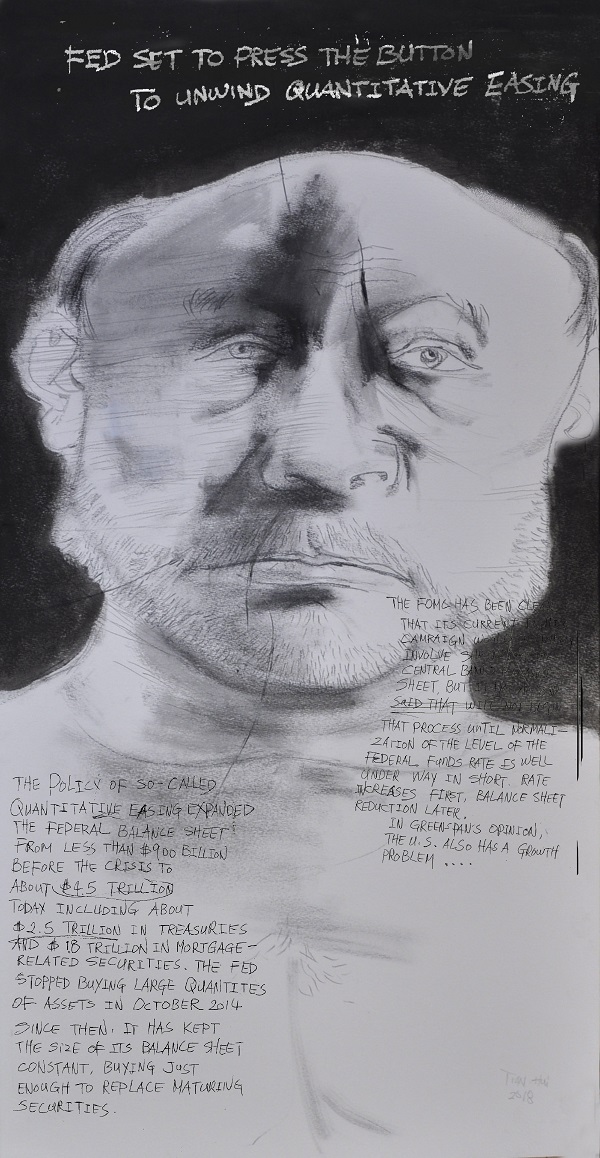 FED SET TO PRESS THE BUTTON
TO UNWIND QUANTITATIVE EASING
THE FOMC HAS BEEN
THAT ITS CURRENT
CAMPAIGN
INVOLVE
CENTRAL
SHEET, BUT
SAID THAT
THAT PROCESS UNTIL NORMALI-
ZATION OF THE LEVEL OF THE
FEDERAL FUNDS RATE IS WELL
UNDER WAY IN SHORT. RATE
INCREASES FIRST, BALANCE SHEET
REDUCTION LATER.
IN GREENSPAN'S OPINION,
THE U.S. ALSO HAS A GROWTH
PROBLEM ....
THE POLICY OF SO-CALLED
QUANTITATIVE EASING EXPANDED
THE FEDERAL BALANCE SHEET
FROM LESS THAN $900 BILLION
BEFORE THE CRISIS TO
ABOUT $4.5 TRILLION
TODAY INCLUDING ABOUT
$2.5 TRILLION IN TREASURIES
AND $1.8 TRILLION IN MORTGAGE-
RELATED SECURITIES. THE FED
STOPPED BUYING LARGE QUANTITES
OF ASSETS IN OCTOBER 2014
SINCE THEN, IT HAS KEPT
THE SIZE OF ITS BALANCE SHEET
CONSTANT, BUYING JUST
ENOUGH TO REPLACE MATURING
SECURITIES.
2018